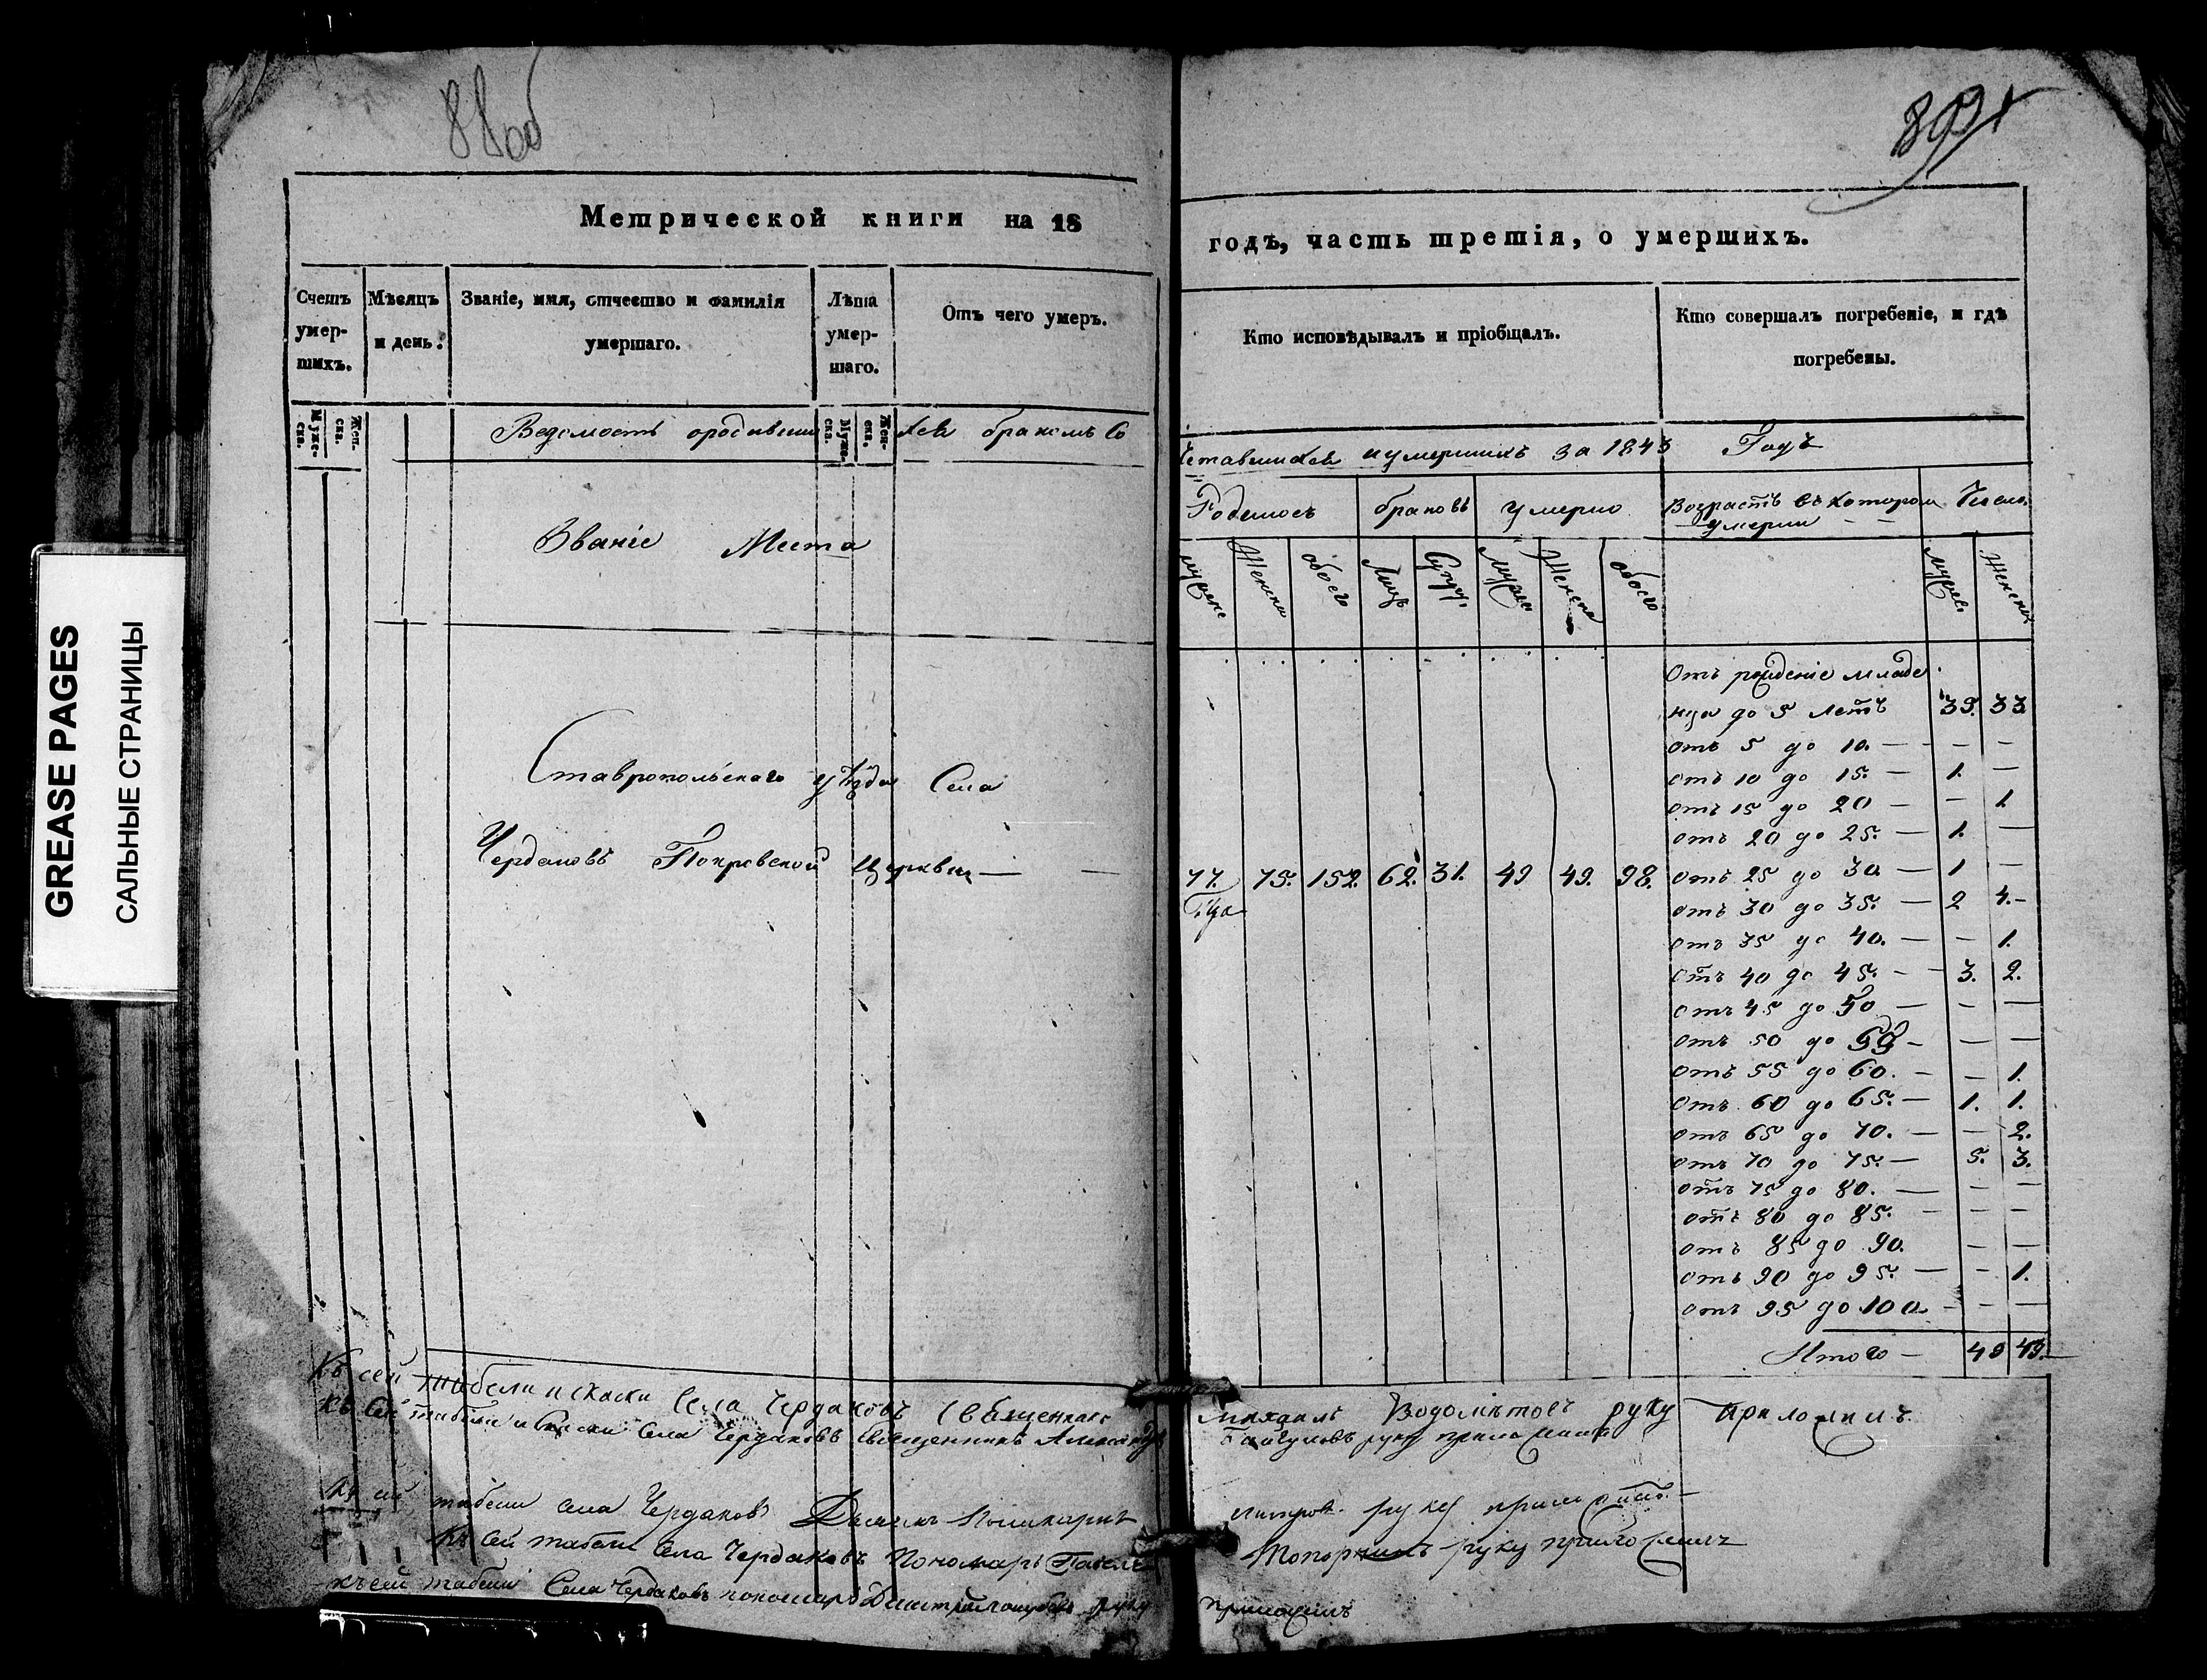 88об
89
GREASE PAGES
САЛЬНЫЕ СТРАНИЦЫ
Метрической книги на 18
годъ, часть третія, о умершихъ.
Счетъ умер-шихъ.
Мѣсяцъ и день.
Званіе, имя, отчество и фамилія умершаго.
Лѣта умер-шаго.
Отъ чего умеръ.
Кто исповѣдывалъ и пріобщалъ.
Кто совершалъ погребеніе, и гдѣ погребены.
Муже-ска.
Жен-ска.
Муже-ска.
Жен-ска.
Ведомость ородивши хся бракомъ Со
четавшихся иумершихъ за 1843 Годъ
Званіе Места
Родилось
браковъ
умерло
Возрастъ въ котором умерли
Число
мужеска
Женска
обоего
Лицъ
Супру.
мужес
Женска
обоего
мужес
Женска
Ставропольскаго уѣзда Села
Чердаковъ Покровской церкви — —
77. 75. 152. 62. 31. 49 49. 98.
Отъ рождение младе
нца до 5 летъ 35. 33.
отъ 5 до 10. — — —
отъ 10 до 15. — 1. —
отъ 15 до 20 — — 1
отъ 20 до 25. — 1. —
отъ 25 до 30. — 1 —
отъ 30 до 35. — 2 4. —
отъ 35 до 40. — — 1.
отъ 40 до 45. — 3. 2.
отъ 45 до 50 — — —
отъ 50 до 55 — — —
отъ 55 до 60. — — 1.
отъ 60 до 65. — 1. 1.
отъ 65 до 70. — — 2.
отъ 70 до 75. — 5. 3.
отъ 75 до 80. — — —
отъ 80 до 85. — — —
отъ 85 до 90. — —
отъ 90 до 95. — — 1.
отъ 95 до 100. — — —
Итого — 49 49. —
Къ сей табели и скаски Села Чердаковъ Священникъ Михаилъ руку приложилъ
Къ сей табели и скаски Села Чердаковъ Священникъ Александръ руку приложилъ
Къ сей табели села Чердаковъ Дьячекъ руку приложилъ
Къ сей табели Села Чердаковъ Пономарь Павелъ Топоркинъ руку приложилъ
къ сей табели Села Чердаковъ пономарь Дмитрій руку
приложилъ